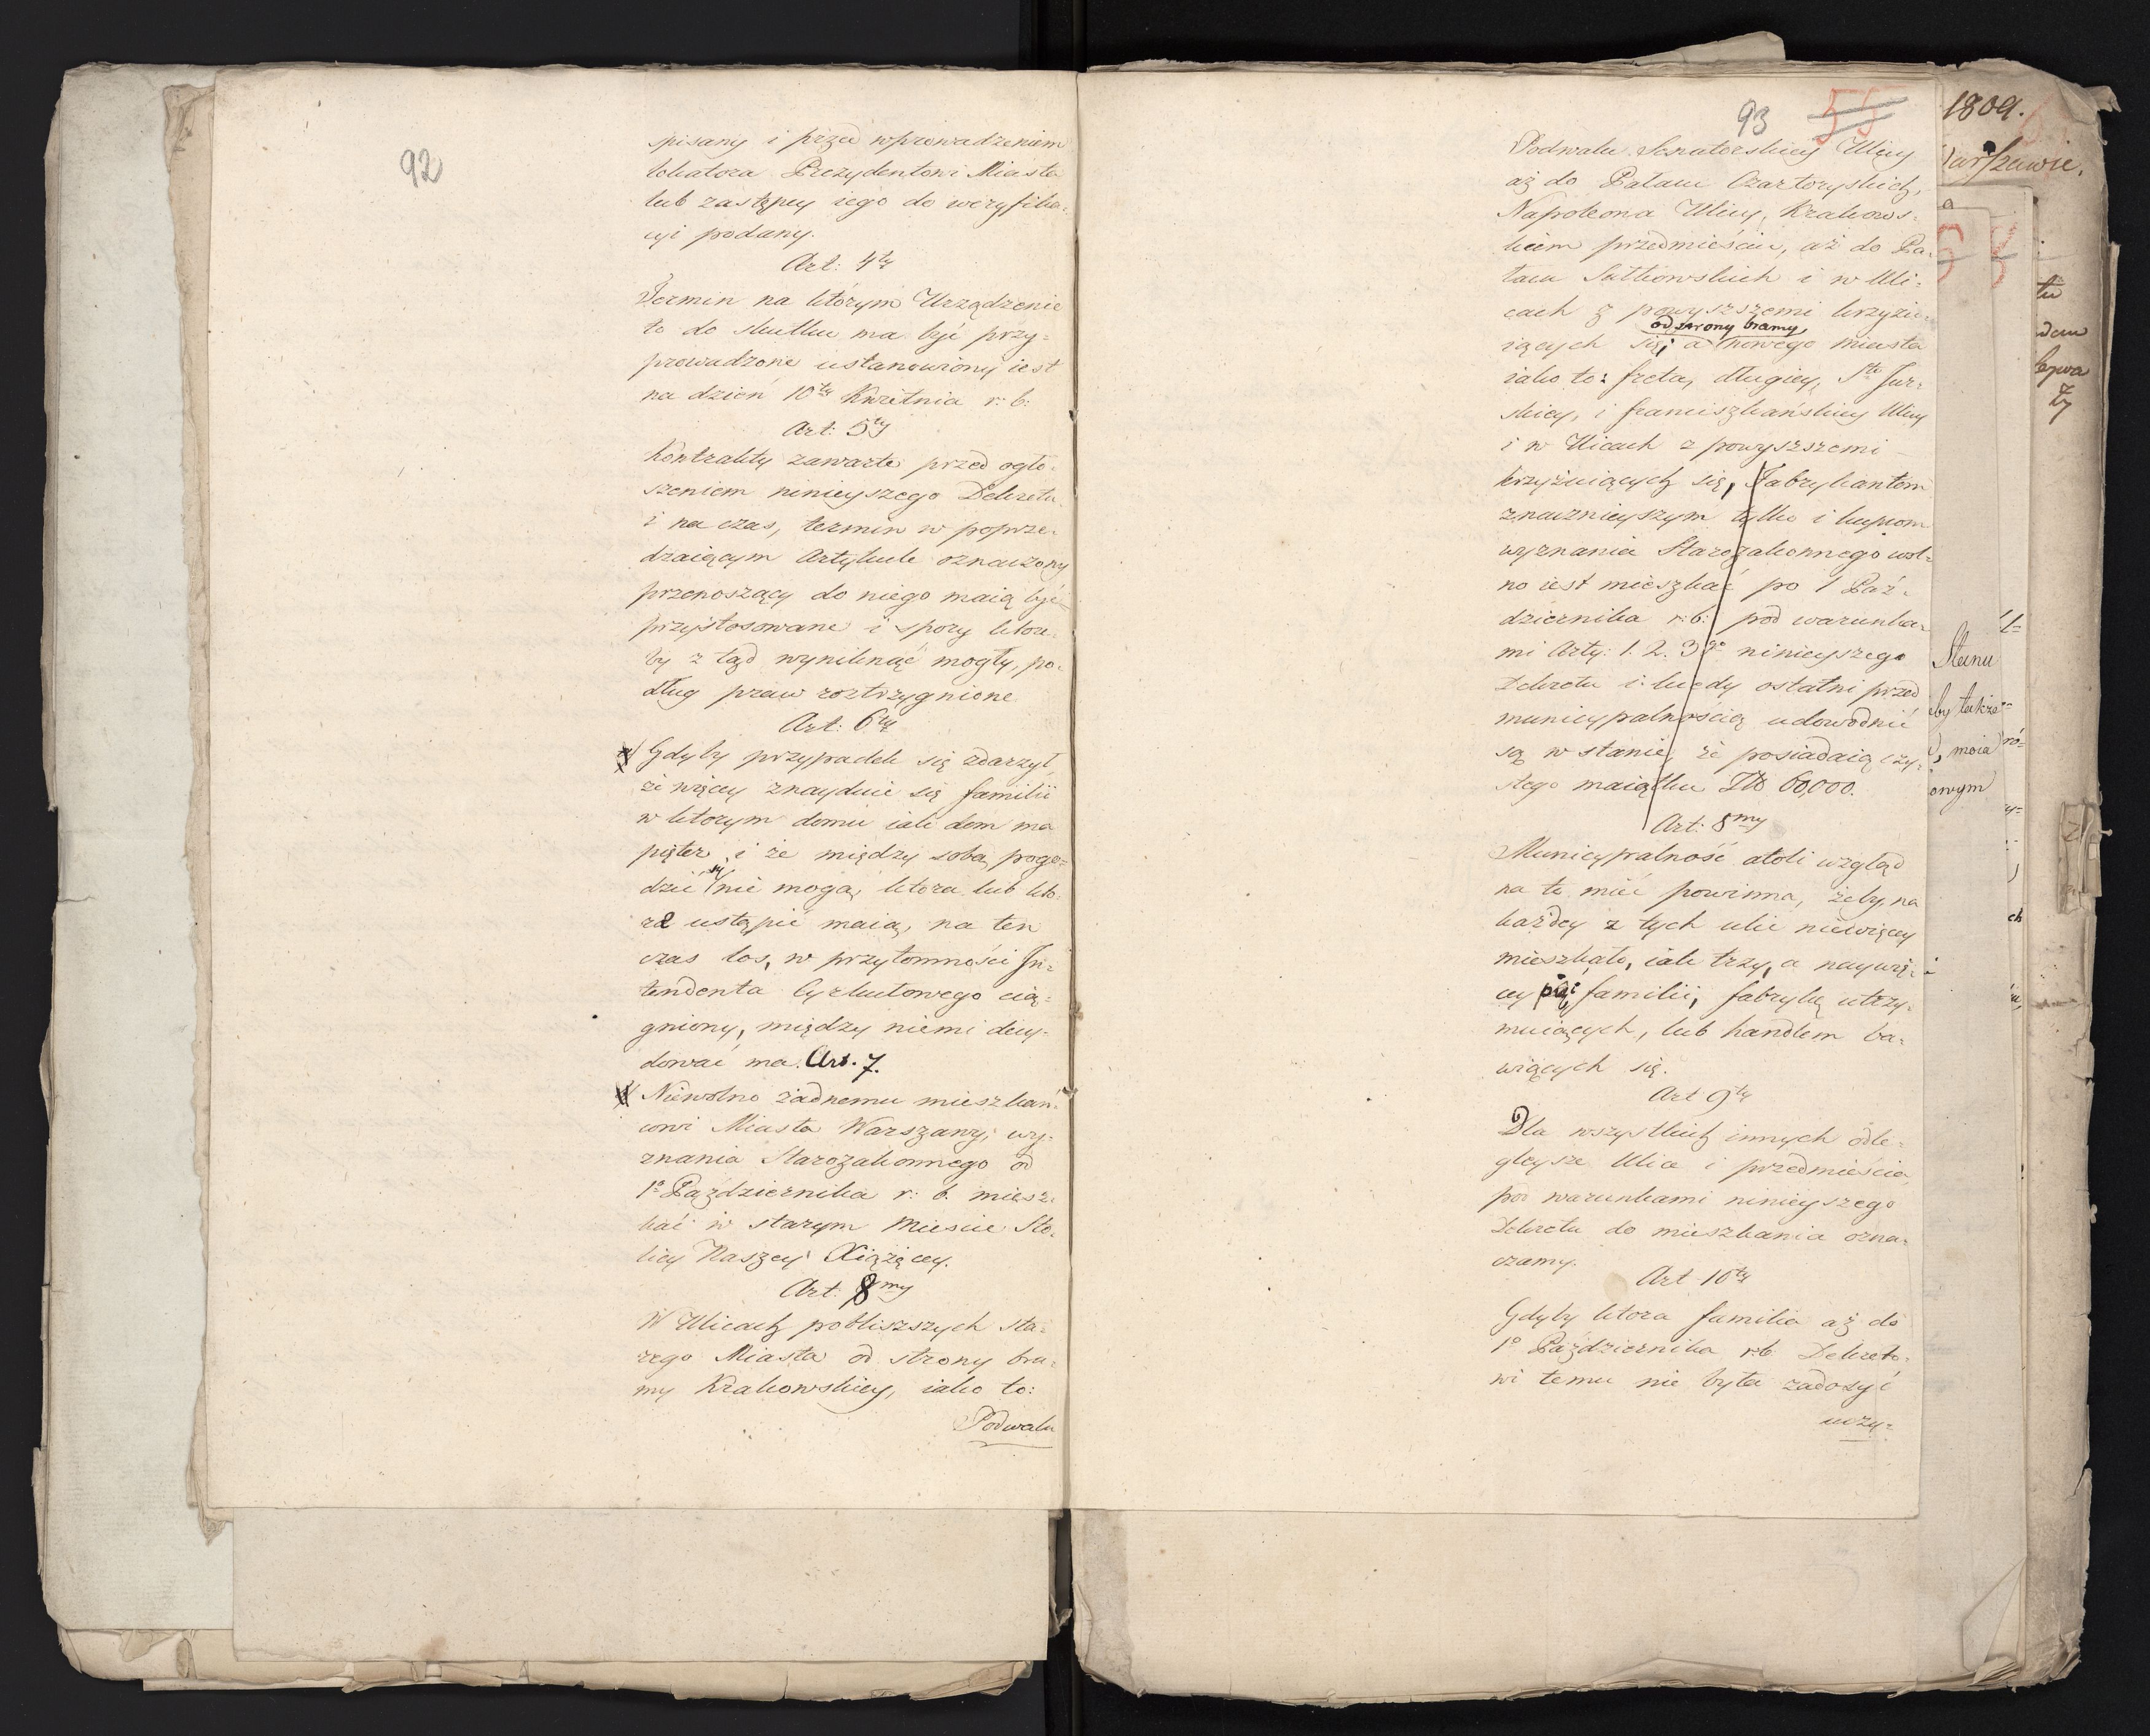 92
spisany i przed wprowadzeniem
lokatora Prezydentowi Miasta
lub zastępcy iego do weryfika-
cyi podany.
Art: 4ty
Termin na którym Urządzenie
to do skutku ma być przy-
prowadzone ustanowiony iest
na dzień 10ty Kwietnia r: b:
Art: 5ty
Kontrakty zawarte przed ogło-
szeniem ninieyszego Dekretu
i na czas, termin w poprze-
dzaiącym Artykule oznaczony
przenoszący do niego maią być
przystosowane i spory które-
by z tąd wyniknąć mogły, po-
dług praw roztrzygnione
Art: 6ty
Gdyby przypadek się zdarzył
że więcey znayduie się familii
w którym domu iak dom ma
pięter, i że między sobą pogo-
dzić się nie mogą, która lub któ-
re ustąpić maią, na ten
czas los, w przytomności In-
tendenta Cyrkułowego cią-
gniony, między niemi decy-
dować ma. Art. 7.
Niewolno żadnemu mieszkań-
cowi Miasta Warszawy, wy-
znania Starozakonnego od
1o Października r: b. miesz-
kać w starym Mieście Sto-
licy Naszey Xiążęcey.
Art: 8my
W Ulicach pobliszszych sta-
rego Miasta od strony bra-
my Krakowskiey, iako to:
Podwalu
93 55
Podwalu Senatorskiey Ulicy
aż do Pałacu Czartoryskich,
Napoleona Ulicy, Krakows-
kiem przedmieściu, aż do Pa-
łacu Sułkowskich i w Uli-
cach z powyższemi krzyżu-
od strony bramy
iących się, a nowego Miasta
iako to: freta, długiey, Sto Jur-
skiey, i franciszkańskiey Ulicy
i w Ulicach z powyższzemi
krzyżuiących się, Fabrykantom
znacznieyszym tylko i kupcom
wyznania Starozakonnego wol-
no iest mieszkać po 1 Paź-
dziernika r: b: pod warunka-
mi Arty: 1. 2. 3go ninieyszego
Dekretu i kiedy ostatni przed
municypalnością udowodnić
są w stanie, że posiadaią czy-
stego maiątku Zł 60,000.
Art: 8my
Municypalność atoli wzgląd
na to mieć powinna, żeby na
każdey z tych ulic niewięcey
mieszkało, iak trzy, a naywię-
cey pięć familii, fabrykę utrzy-
muiących, lub handlem ba-
wiących się.
Art 9ty
Dla wszystkich innych odle-
gleysze Ulice i przedmieścia,
pod warunkami ninieyszego
Dekretu do mieszkania ozna-
czamy.
Art 10ty
Gdyby która familia aż do
1o Października r:b Dekreto-
wi temu nie była zadosyć
uczy-
1809.
Stanu
by także
moia
owym